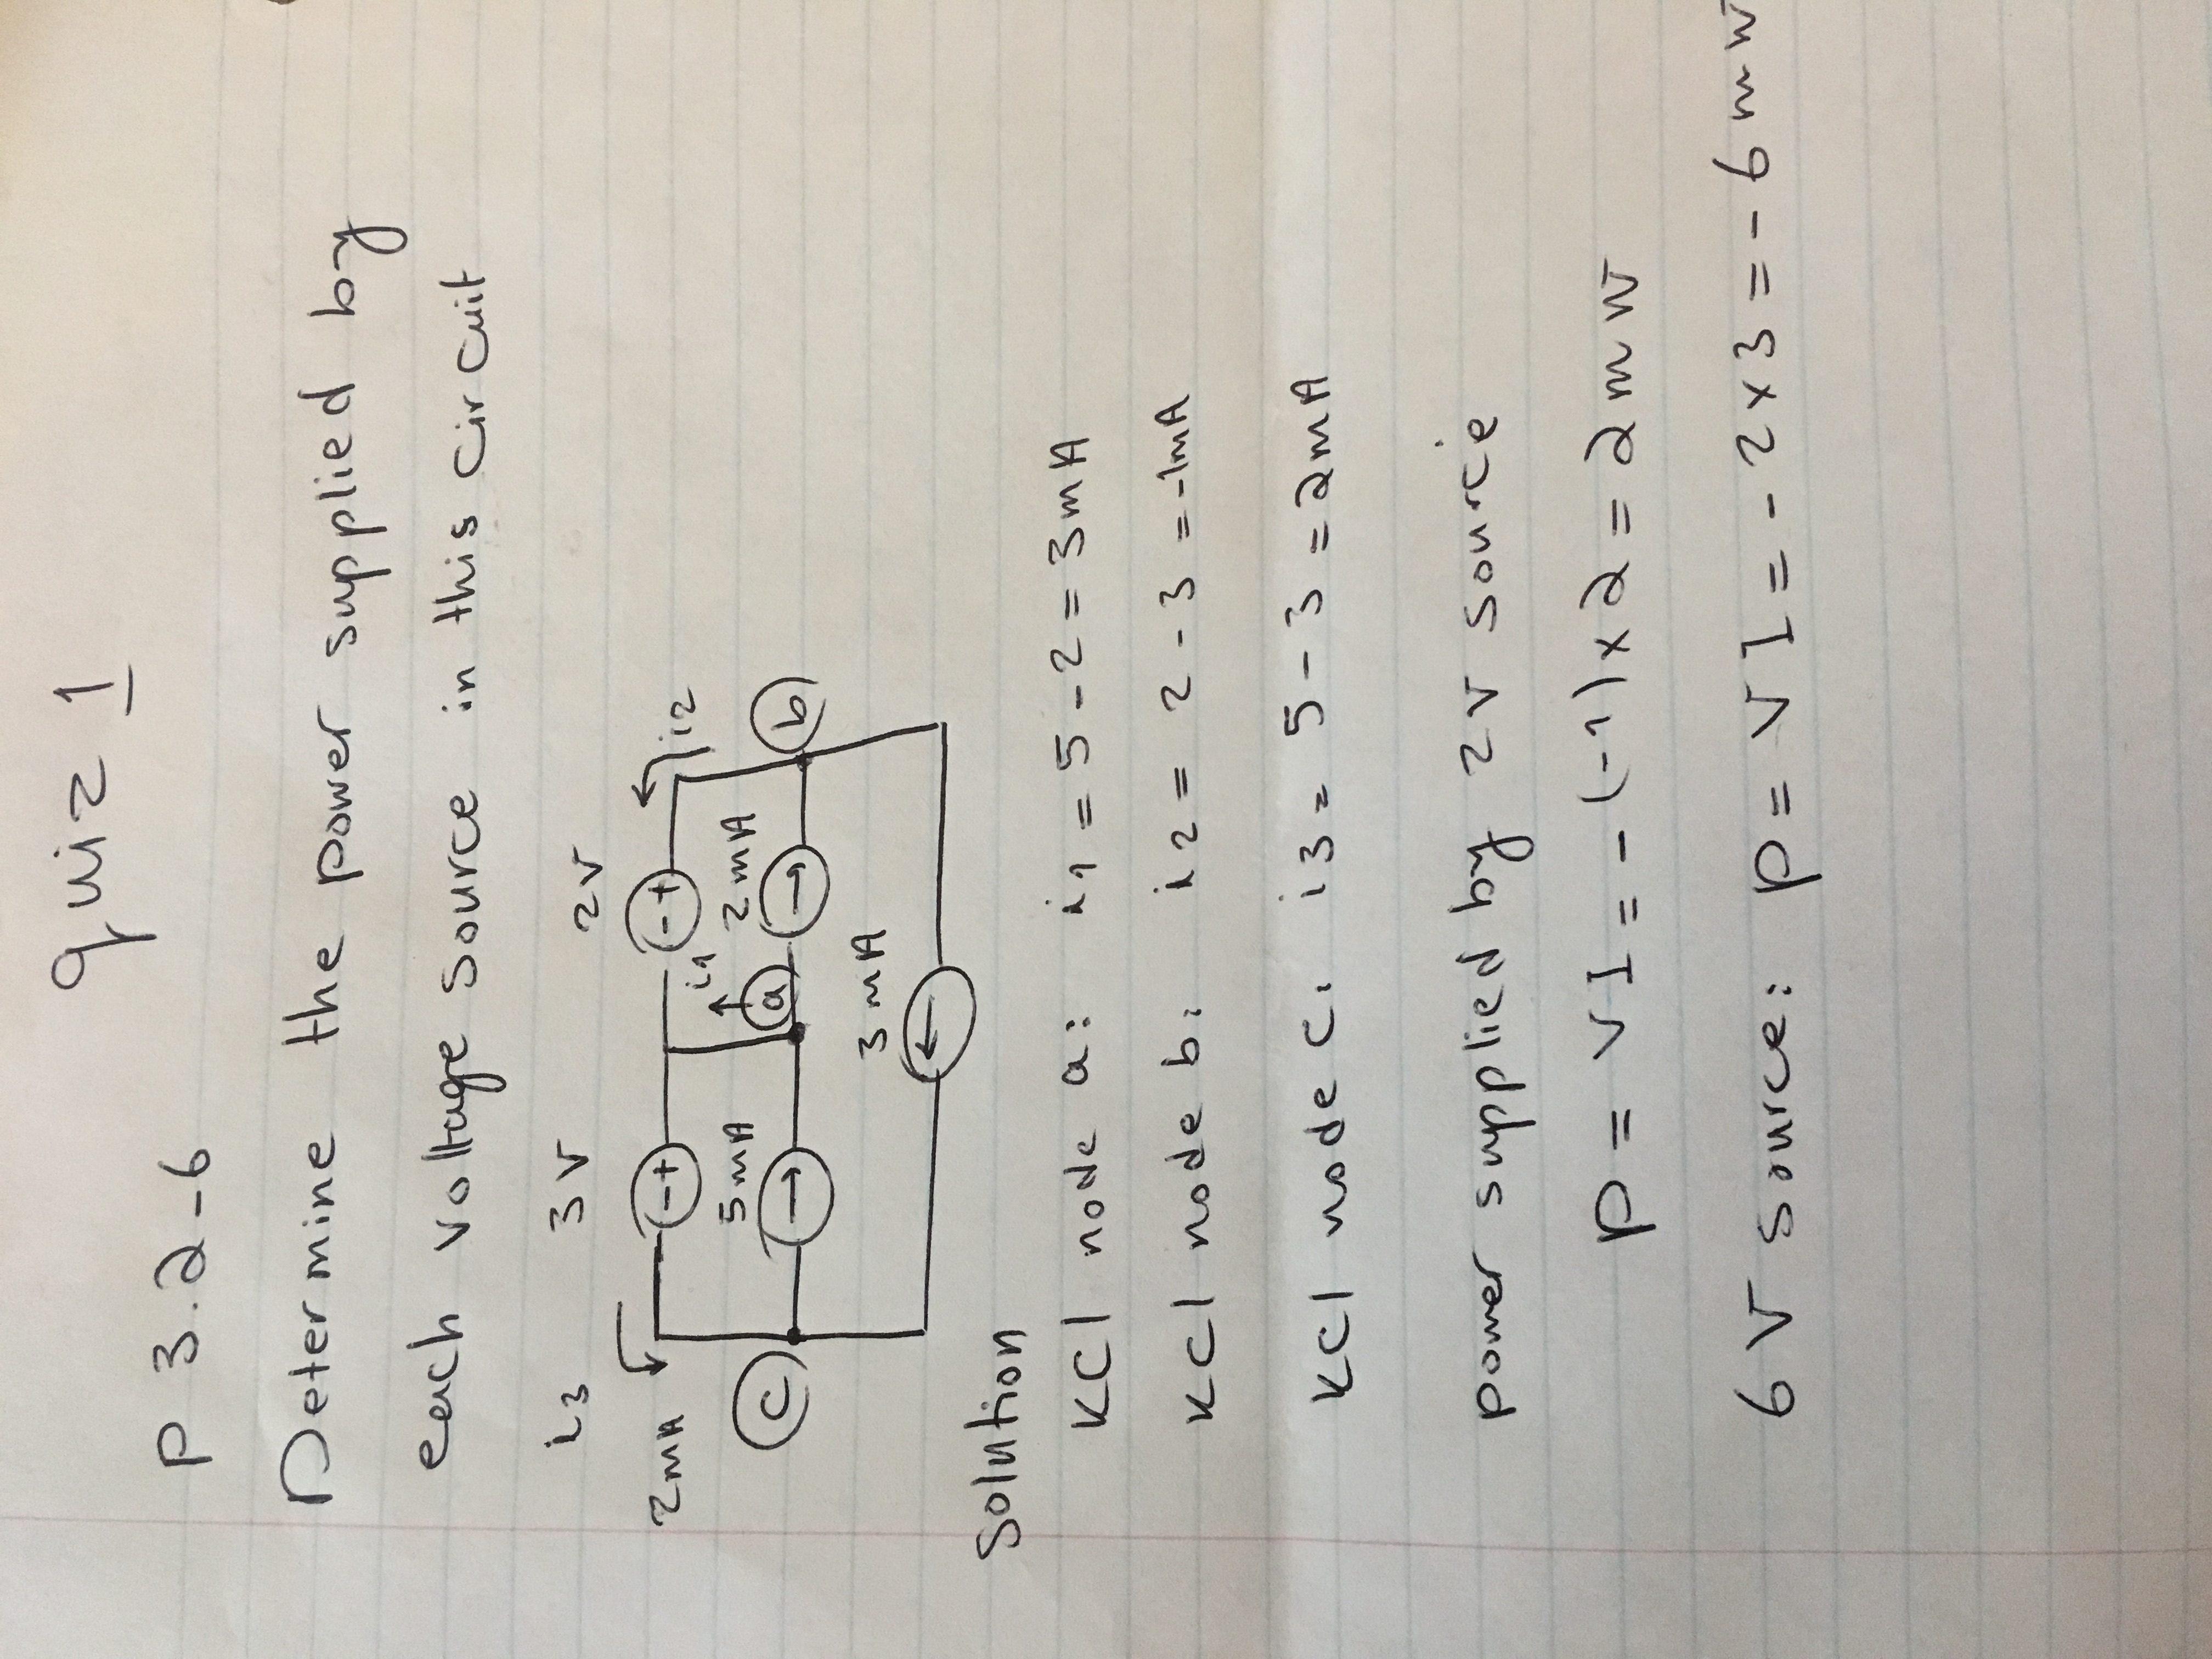 quiz 1
P 3.2-6
Determine the power supplied by
each voltage source in this circuit
i3 3V 2V
2mA - + i1 - + i2
5mA 2mA
c a b
3mA
Solution
KCl node a: i1 = 5 - 2 = 3mA
KCl node b: i2 = 2 - 3 = -1mA
KCl node c: i3 = 5 - 3 = 2mA
power supplied by 2V source
P = VI = -(-1) x 2 = 2mW
6V source: P = VI = -2x3 = -6mW